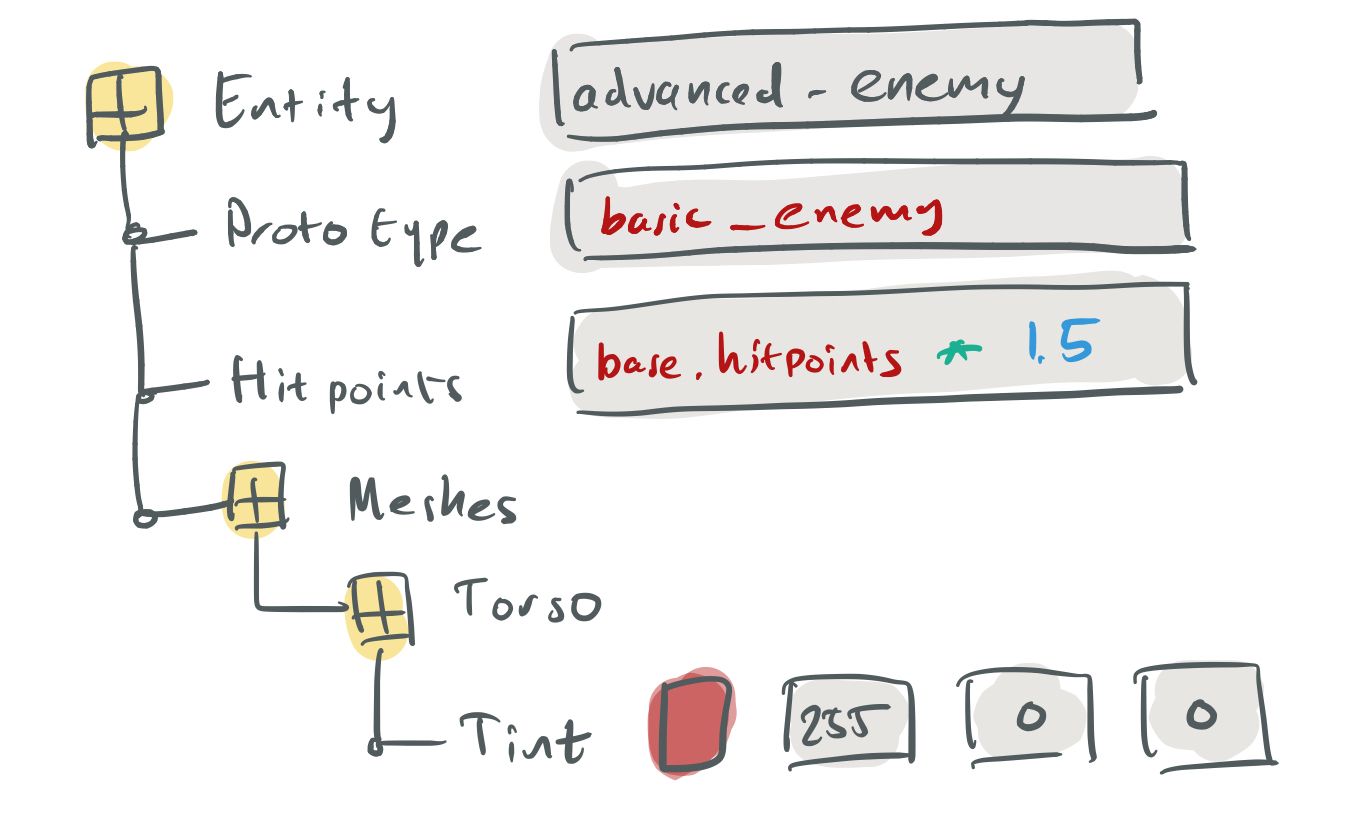 Entity advanced_enemy
Prototype basic_enemy
Hitpoints base.hitpoints * 1.5
Meshes
Torso
Tint 255 0 0